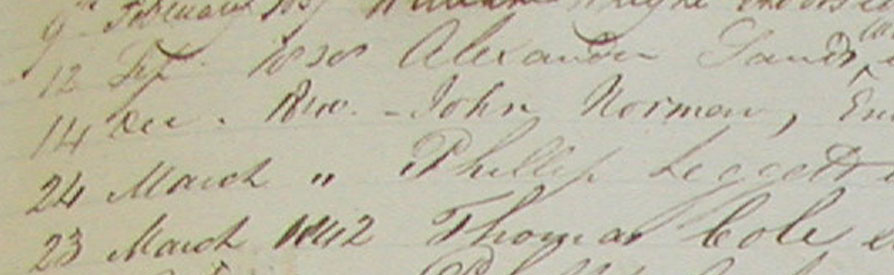 9th February 1837 William
12 Sep. 1838 Alexander Sands
14 Dec. 1840. - John Norman,
24 March " Phillip Leggett
23 March 1842 Thomas Cole